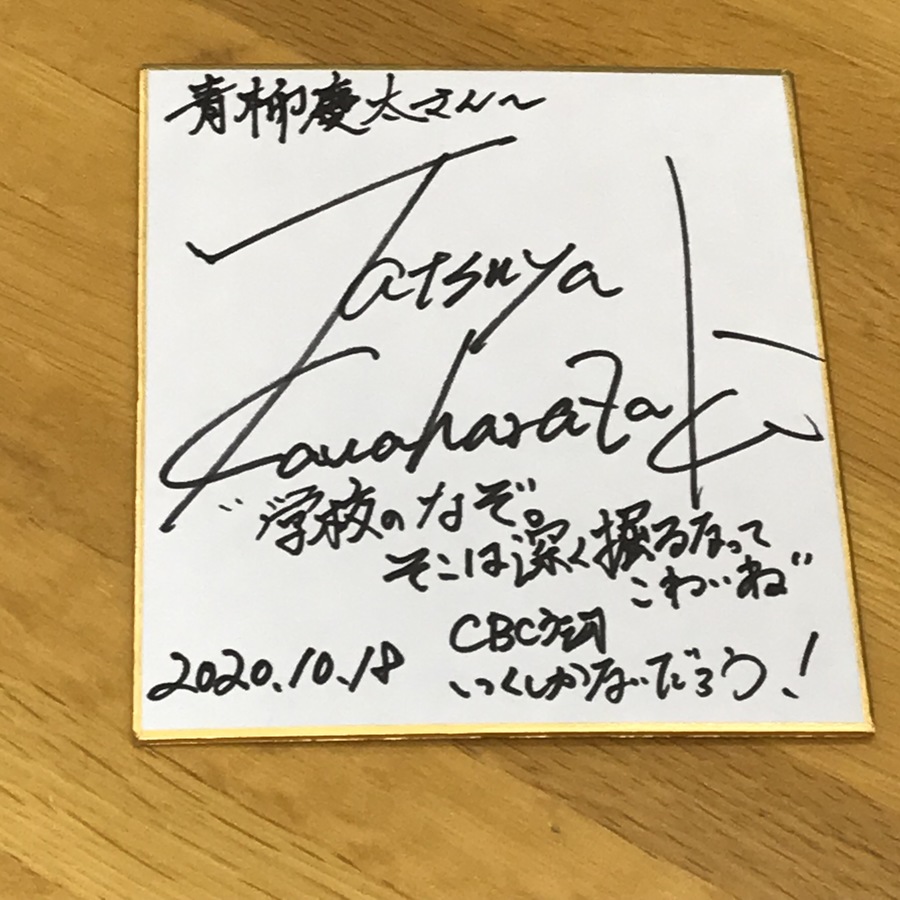 青柳慶太さんへ
Tatsuya
Kawaharazaki
"学校のなぞ。
そこは深く掘るなって
こわいね"
CBCラジオ
いくしかないだろう!
2020.10.18